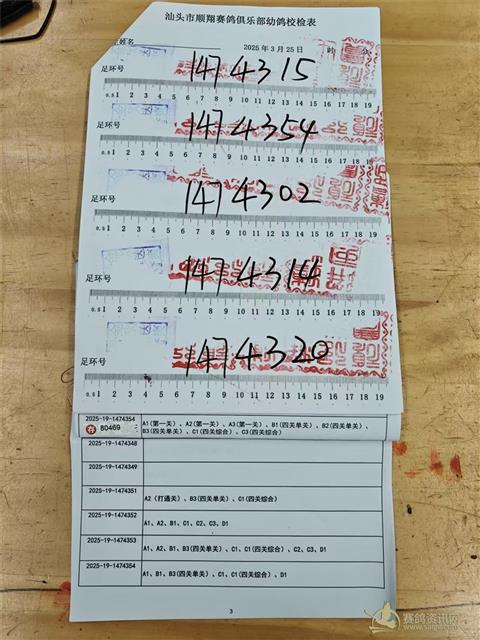 汕头市顺翔赛鸽俱乐部幼鸽校检表
姓名
2025 年 3 月 25 日
足环号 1474315
0.5 1 2 3 4 5 6 7 8 9 10 11 12 13 14 15 16 17 18 19
足环号 1474354
0.5 1 2 3 4 5 6 7 8 9 10 11 12 13 14 15 16 17 18 19
足环号 1474302
0.5 1 2 3 4 5 6 7 8 9 10 11 12 13 14 15 16 17 18 19
足环号 1474314
0.5 1 2 3 4 5 6 7 8 9 10 11 12 13 14 15 16 17 18 19
足环号 1474320
0.5 1 2 3 4 5 6 7 8 9 10 11 12 13 14 15 16 17 18 19
2025-19-1474354
80469
A1(第一关)、A2(第一关)、A3(第一关)、B1(四关单关)、B2(四关单关)、
B3(四关单关)、C1(四关综合)、C3(四关综合)
2025-19-1474348
2025-19-1474349
2025-19-1474351
A2（打通关）、B3(四关单关)、C1(四关综合)
2025-19-1474352
A1、A2、B1、C1、C2、C3、D1
2025-19-1474353
A1、A2、B1、B3(四关单关)、C1、C1(四关综合)、C2、C3、D1
2025-19-1474354
A1、B1、B3(四关单关)、C1、C1(四关综合)、D1
3
赛鸽资讯网